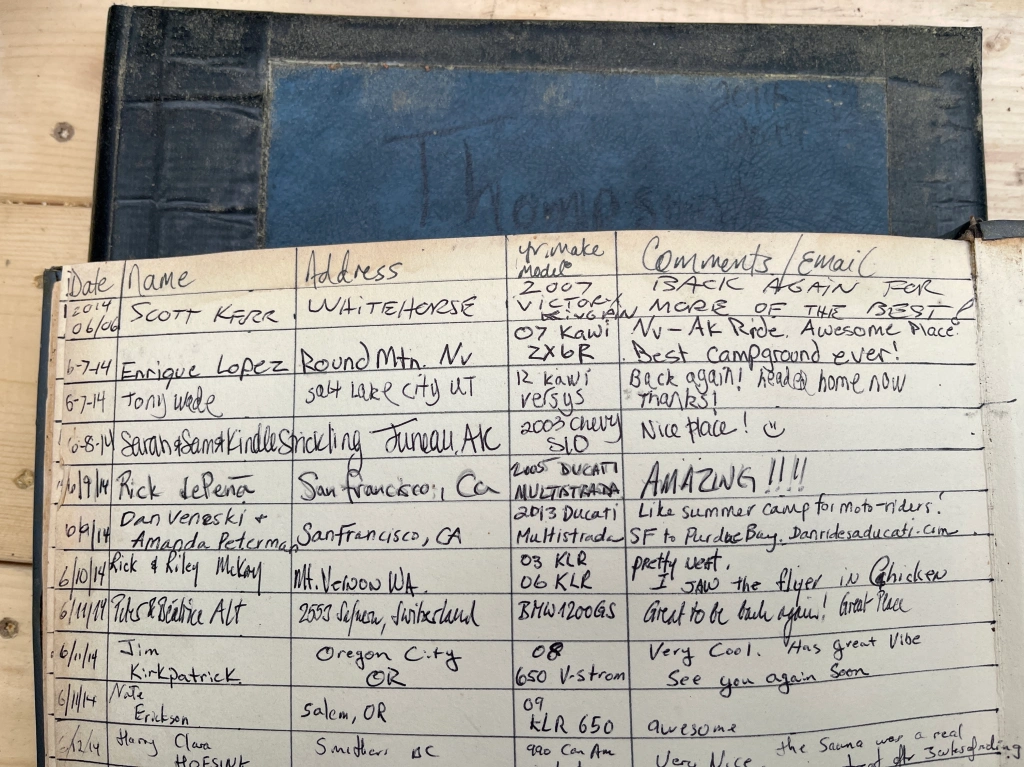 2014
Thompson
Date Name Address yr. make model Comments / Email
2014 06/06 SCOTT KERR WHITEHORSE 2007 VICTORY KINGPIN BACK AGAIN FOR MORE OF THE BEST!
6-7-14 Enrique Lopez Round Mtn. Nv 07 Kawi ZX6R Nv - AK Ride. Awesome Place. Best campground ever!
6-7-14 Tony Wade salt Lake city UT 12 kawi versys Back again! head@ home now Thanks!
6-8-14 Sarah & Sam & Kindle Strickling Juneau, AK 2003 Chevy S10 Nice place! ☺
6/9/14 Rick dePeña San Francisco, Ca 2005 DUCATI MULTISTRADA AMAZING!!!!
6/9/14 Dan Veneski + Amanda Peterman San Francisco, CA 2013 Ducati Multistrada Like summer camp for moto-riders! SF to Purdue Bay. Danridesaducati.com
6/10/14 Rick & Riley McKay Mt. Vernon WA. 03 KLR 06 KLR pretty neat. I saw the flyer in Chicken
6/11/14 & Béatrice Alt 2553 Switzerland BMW 1200GS Great to be back again! Great Place
6/11/14 Jim Kirkpatrick Oregon City OR 08 650 V-strom Very Cool. Has great Vibe See you again Soon
6/11/14 Nate Erickson Salem, OR 09 KLR 650 awesome
6/12/14 Harry Clara HOFSINK Smithers BC 990 Can Am Very Nice the Sauna was a real